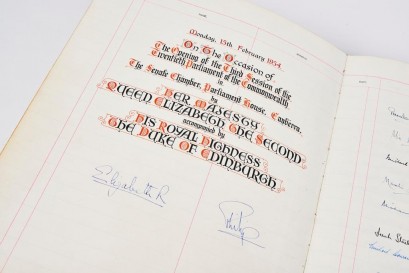 Monday, 15th February 1954.
On The Occasion of
The Opening of the Third Session of the
Twentieth Parliament of the Commonwealth
in
The Senate Chamber, Parliament House, Canberra,
by
HER MAJESTY
QUEEN ELIZABETH THE SECOND
accompanied by
HIS ROYAL HIGHNESS
THE DUKE OF EDINBURGH
Elizabeth R
Philip